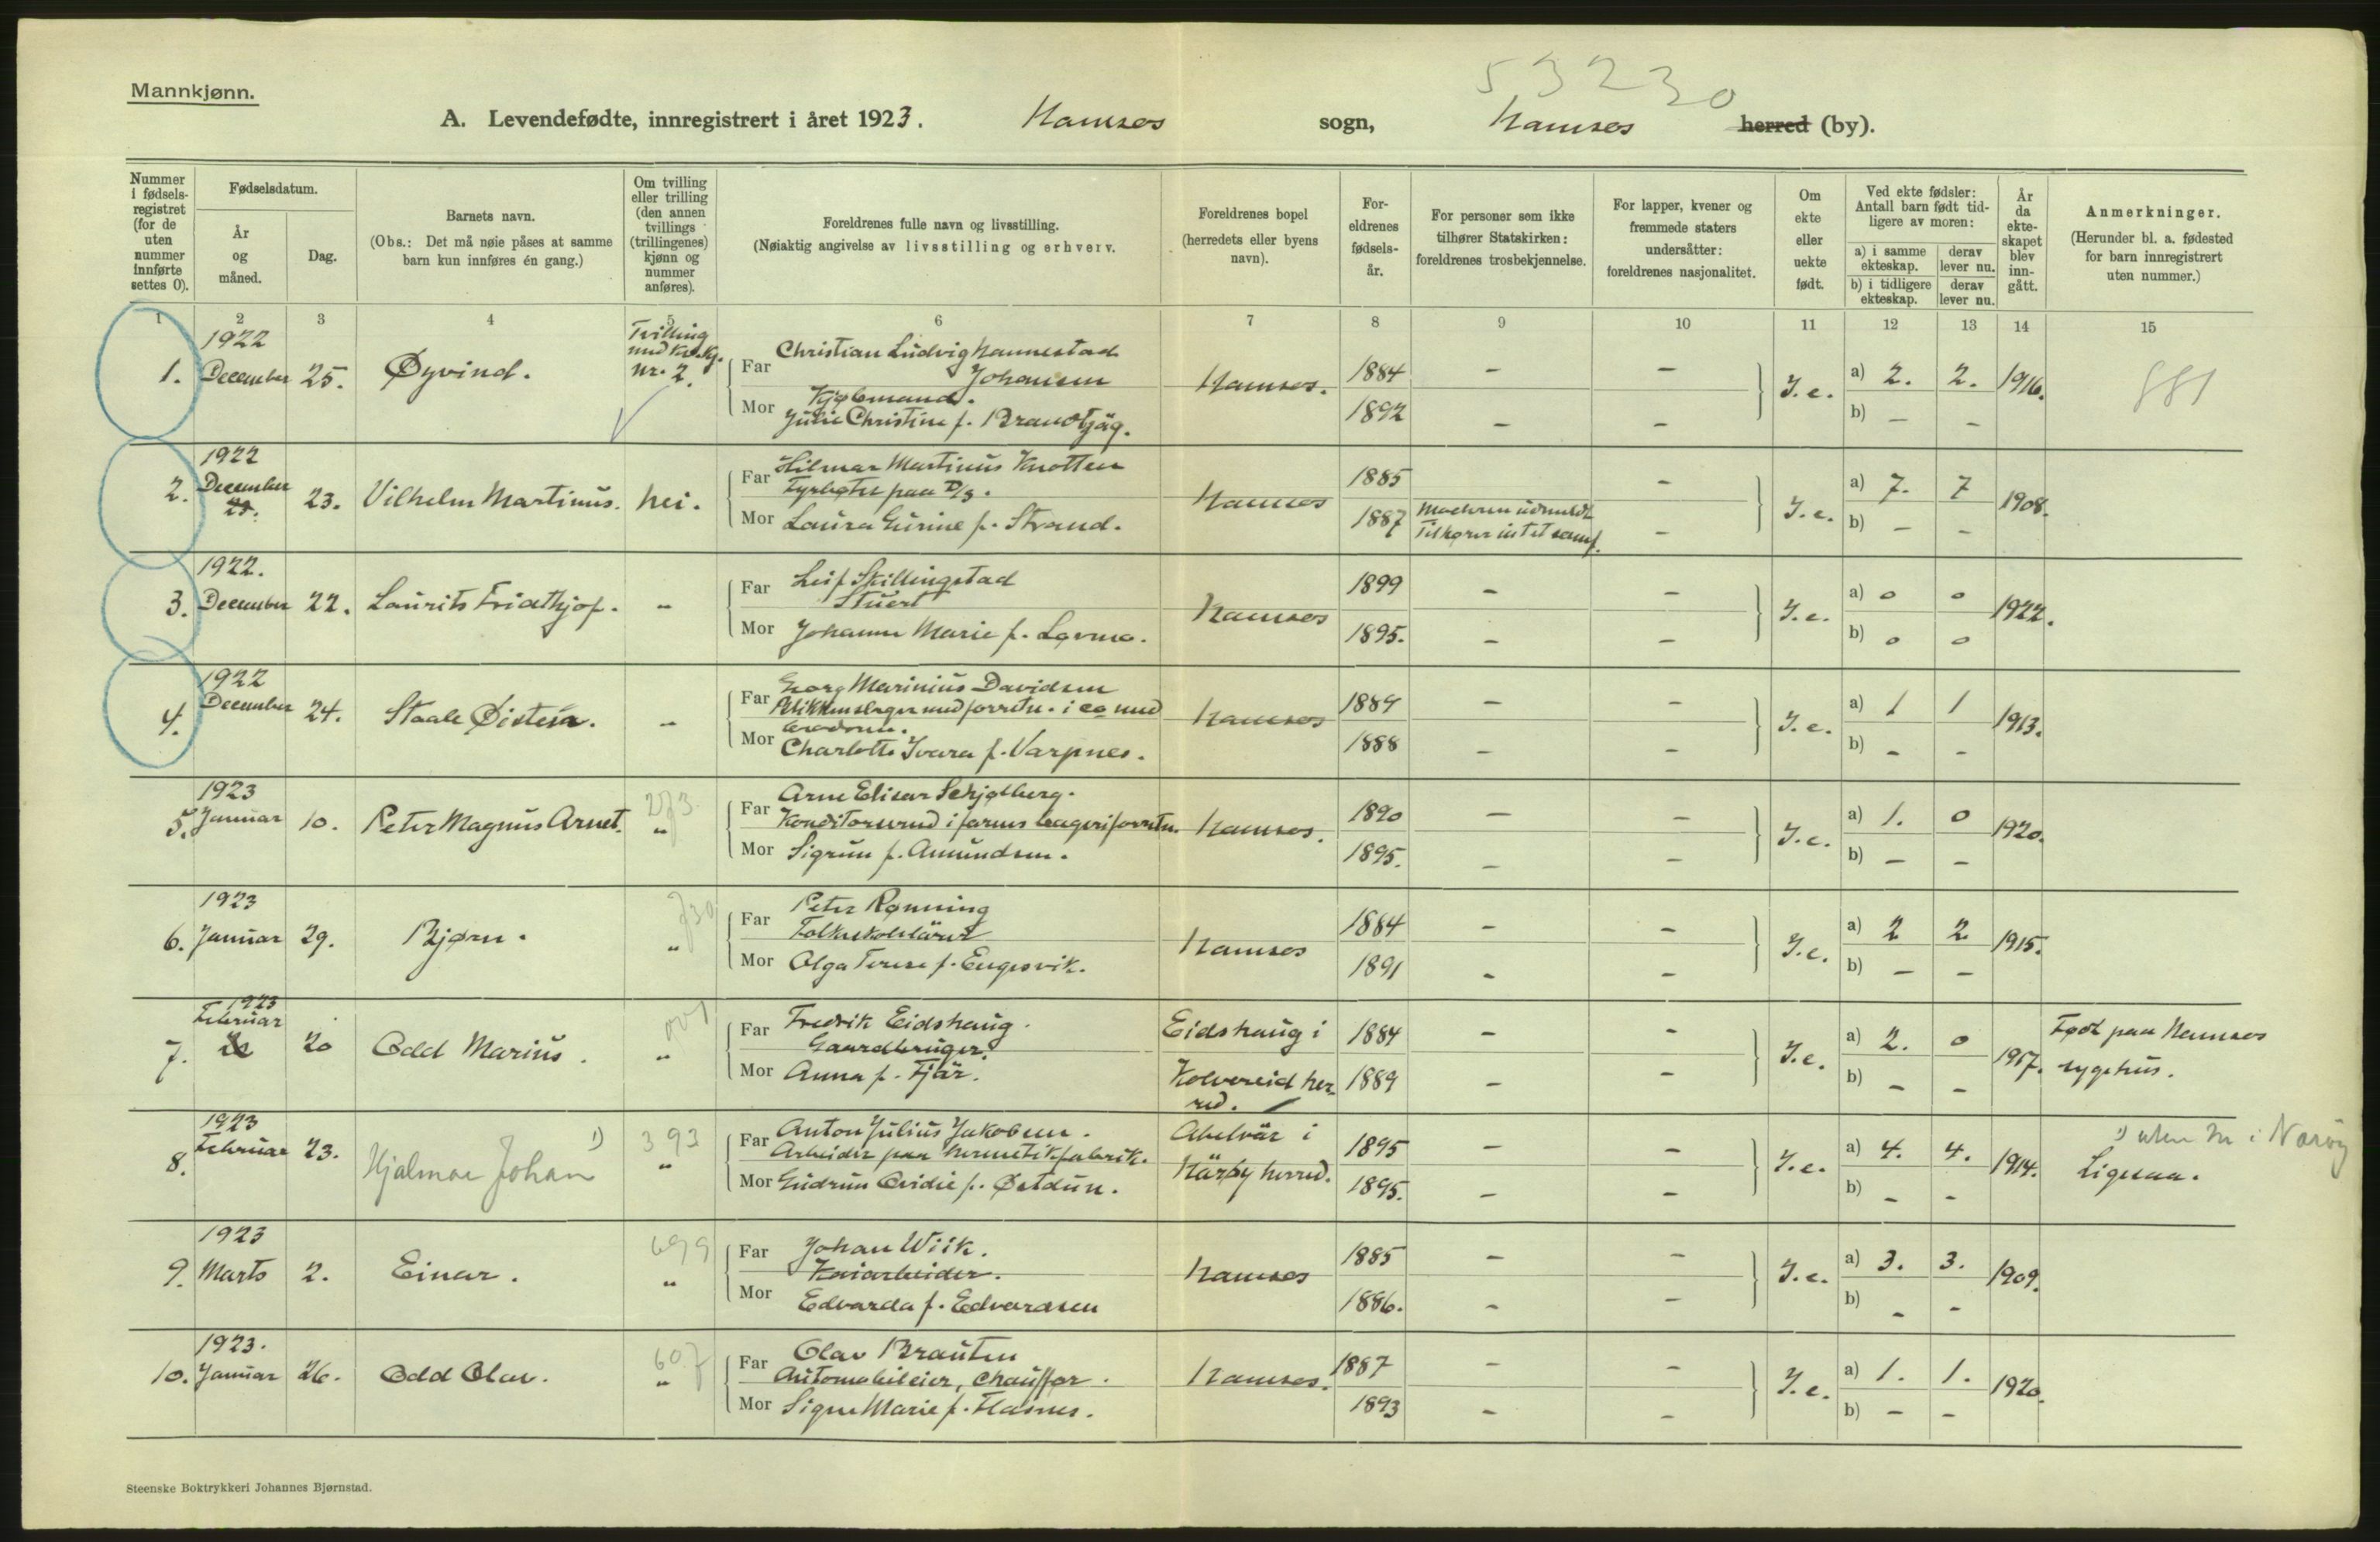 Mannkjønn.
53230
A. Levendefødte, innregistrert i året 1923. Namsos sogn, Namsos herred (by).
Nummer i fødselsregistret (for de uten nummer innførte settes 0).
Fødselsdatum.
År og måned.
Dag.
Barnets navn.
(Obs.: Det må nøie påses at samme barn kun innføres én gang.)
Om tvilling eller trilling (den annen tvillings (trillingenes) kjønn og nummer anføres).
Foreldrenes fulle navn og livsstilling.
(Nøiaktig angivelse av livsstilling og erhverv.
Foreldrenes bopel (herredets eller byens navn).
Foreldrenes fødselsår.
For personer som ikke tilhører Statskirken: foreldrenes trosbekjennelse.
For lapper, kvener og fremmede staters undersåtter: foreldrenes nasjonalitet.
Om ekte eller uekte født.
Ved ekte fødsler: Antall barn født tidligere av moren:
a) i samme ekteskap. derav lever nu.
b) i tidligere ekteskap. derav lever nu.
År da ekteskapet blev inngått.
Anmerkninger.
(Herunder bl. a. fødested for barn innregistrert uten nummer.)
1 2 3 4 5 6 7 8 9 10 11 12 13 14 15
1. 1922 December 25. Øyvind. Tvilling med kv.kj. nr. 2.
Far Christian Ludvig Hannestad Johansen
Kjøbmand.
Mor Julie Christine f. Brandtjäg.
Namsos. 1884 1892 - - - - I.e. a) 2. 2. b) - - 1916.
2. 1922 December 23. Vilhelm Martinus. Nei.
Far Hilmar Martinus Knotten
Fyrbøter paa D/S.
Mor Laura Gurine f. Strand.
Namsos 1885 1887 Moderen udmeldt Tilhører intet samf. - - I.e. a) 7. 7 b) - - 1908.
3. 1922. December 22. Laurits Fridthjof. "
Far Leif Skillingstad
Stuert
Mor Johanne Marie f. Løvmo.
Namsos 1899 1895. - - - - I.e. a) 0 0 b) 0 0 1922.
4. 1922 December 24. Staale Øistein. "
Far Georg Marinius Davidsen
Blikkenslager med forretn. i co med
brodoren.
Mor Charlotte Ivara f. Varpnes.
Namsos 1889 1888 - - - - I.e. a) 1 1 b) - - 1913.
5. 1923 Januar 10. Peter Magnus Arnet. "
Far Arne Elisar Schjølberg.
Konditorsvend i farens bageriforretn.
Mor Sigrun f. Amundsen.
Namsos. 1890 1895. - - - - I.e. a) 1. 0 b) - - 1920.
6. 1923 Januar 29. Bjørn. "
Far Peter Rønning
Folkeskolelärer
Mor Olga Terese f. Engesvik.
Namsos 1884 1891 - - - - I.e. a) 2 2 b) - - 1915.
7. 1923 Februar 20 Odd Marius. "
Far Fredrik Eidshaug.
Gaardbruger.
Mor Anna f. Fjär.
Eidshaug i Kolvereid herred. 1884 1889 - - - - I.e. a) 2. 0 b) - - 1917. Født paa Namsos sygehus.
8. 1923 Februar 23. Hjalmar Johan 1) 393 "
Far Anton Julius Jakobsen.
Arbeider paa hermetikfabrik.
Mor Gudrun Ovidie f. Østdun.
Abelvär i Närøy herred. 1895 1895. - - - - I.e. a) 4. 4. b) - - 1914. 1) uten nr i Nærøy
Ligesaa.
9. 1923 Marts 2. Einar. 699 "
Far Johan Wiik.
Kaiarbeider.
Mor Edvarda f. Edvardsen
Namsos 1885 1886. - - - - I.e. a) 3. 3. b) - - 1909.
10. 1923. Januar 26. Odd Olav. 607 "
Far Olav Brauten
Automobileier, chauffør.
Mor Signe Marie f. Flasnes.
Namsos. 1887 1893 - - - - I.e. a) 1. 1. b) - - 1920.
Steenske Boktrykkeri Johannes Bjørnstad.